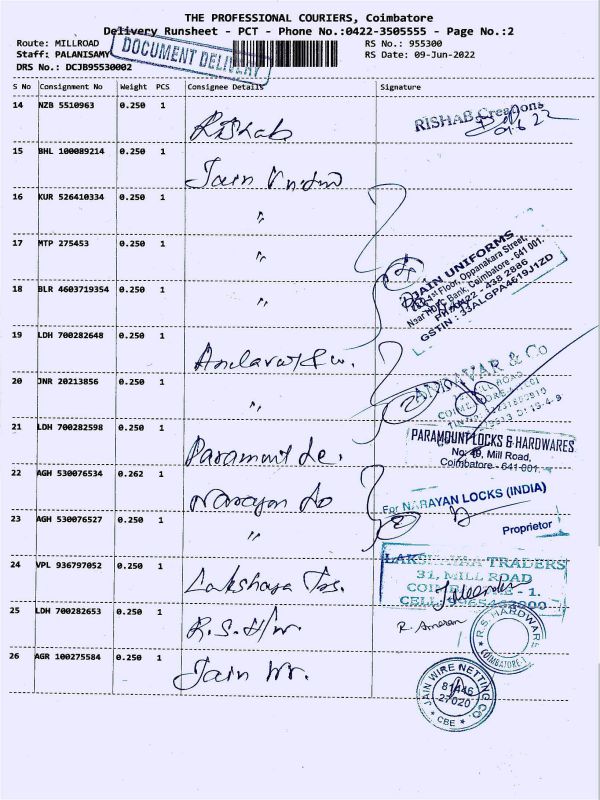 THE PROFESSIONAL COURIERS, Coimbatore
Delivery Runsheet - PCT - Phone No.:0422-3505555 - Page No.:2
Route: MILLROAD
RS No.: 955300
Staff: PALANISAMY
DOCUMENT DELIVERY
RS Date: 09-Jun-2022
DRS No.: DCJB95530002
S No Consignment No Weight PCS Consignee Details Signature
14 NZB 5510963 0.250 1 Rishab
RISHAB Creations
15 BHL 100089214 0.250 1 Jain
16 KUR 526410334 0.250 1 "
17 MTP 275453 0.250 1 "
18 BLR 4603719354 0.250 1 "
JAIN UNIFORMS
1st Floor, Oppanakara Street,
Near HDFC Bank, Coimbatore - 641 001.
438 2886
GSTIN : 33ALGPA4619J1ZD
19 LDH 700282648 0.250 1
20 JNR 20213856 0.250 1 "
ANDAVAR & Co
21 LDH 700282598 0.250 1 Paramount
PARAMOUNT LOCKS & HARDWARES
No: 49, Mill Road,
Coimbatore - 641 001.
22 AGH 530076534 0.262 1 Narayan
For NARAYAN LOCKS (INDIA)
Proprietor
23 AGH 530076527 0.250 1 "
24 VPL 936797052 0.250 1 Lakshara
TRADERS
31, MILL ROAD
25 LDH 700282653 0.250 1 R.S. H/w.
R.S. HARDWARE
COIMBATORE-1
26 AGR 100275584 0.250 1 Jain Wr.
JAIN WIRE NETTING CO.
81446
27020
CBE